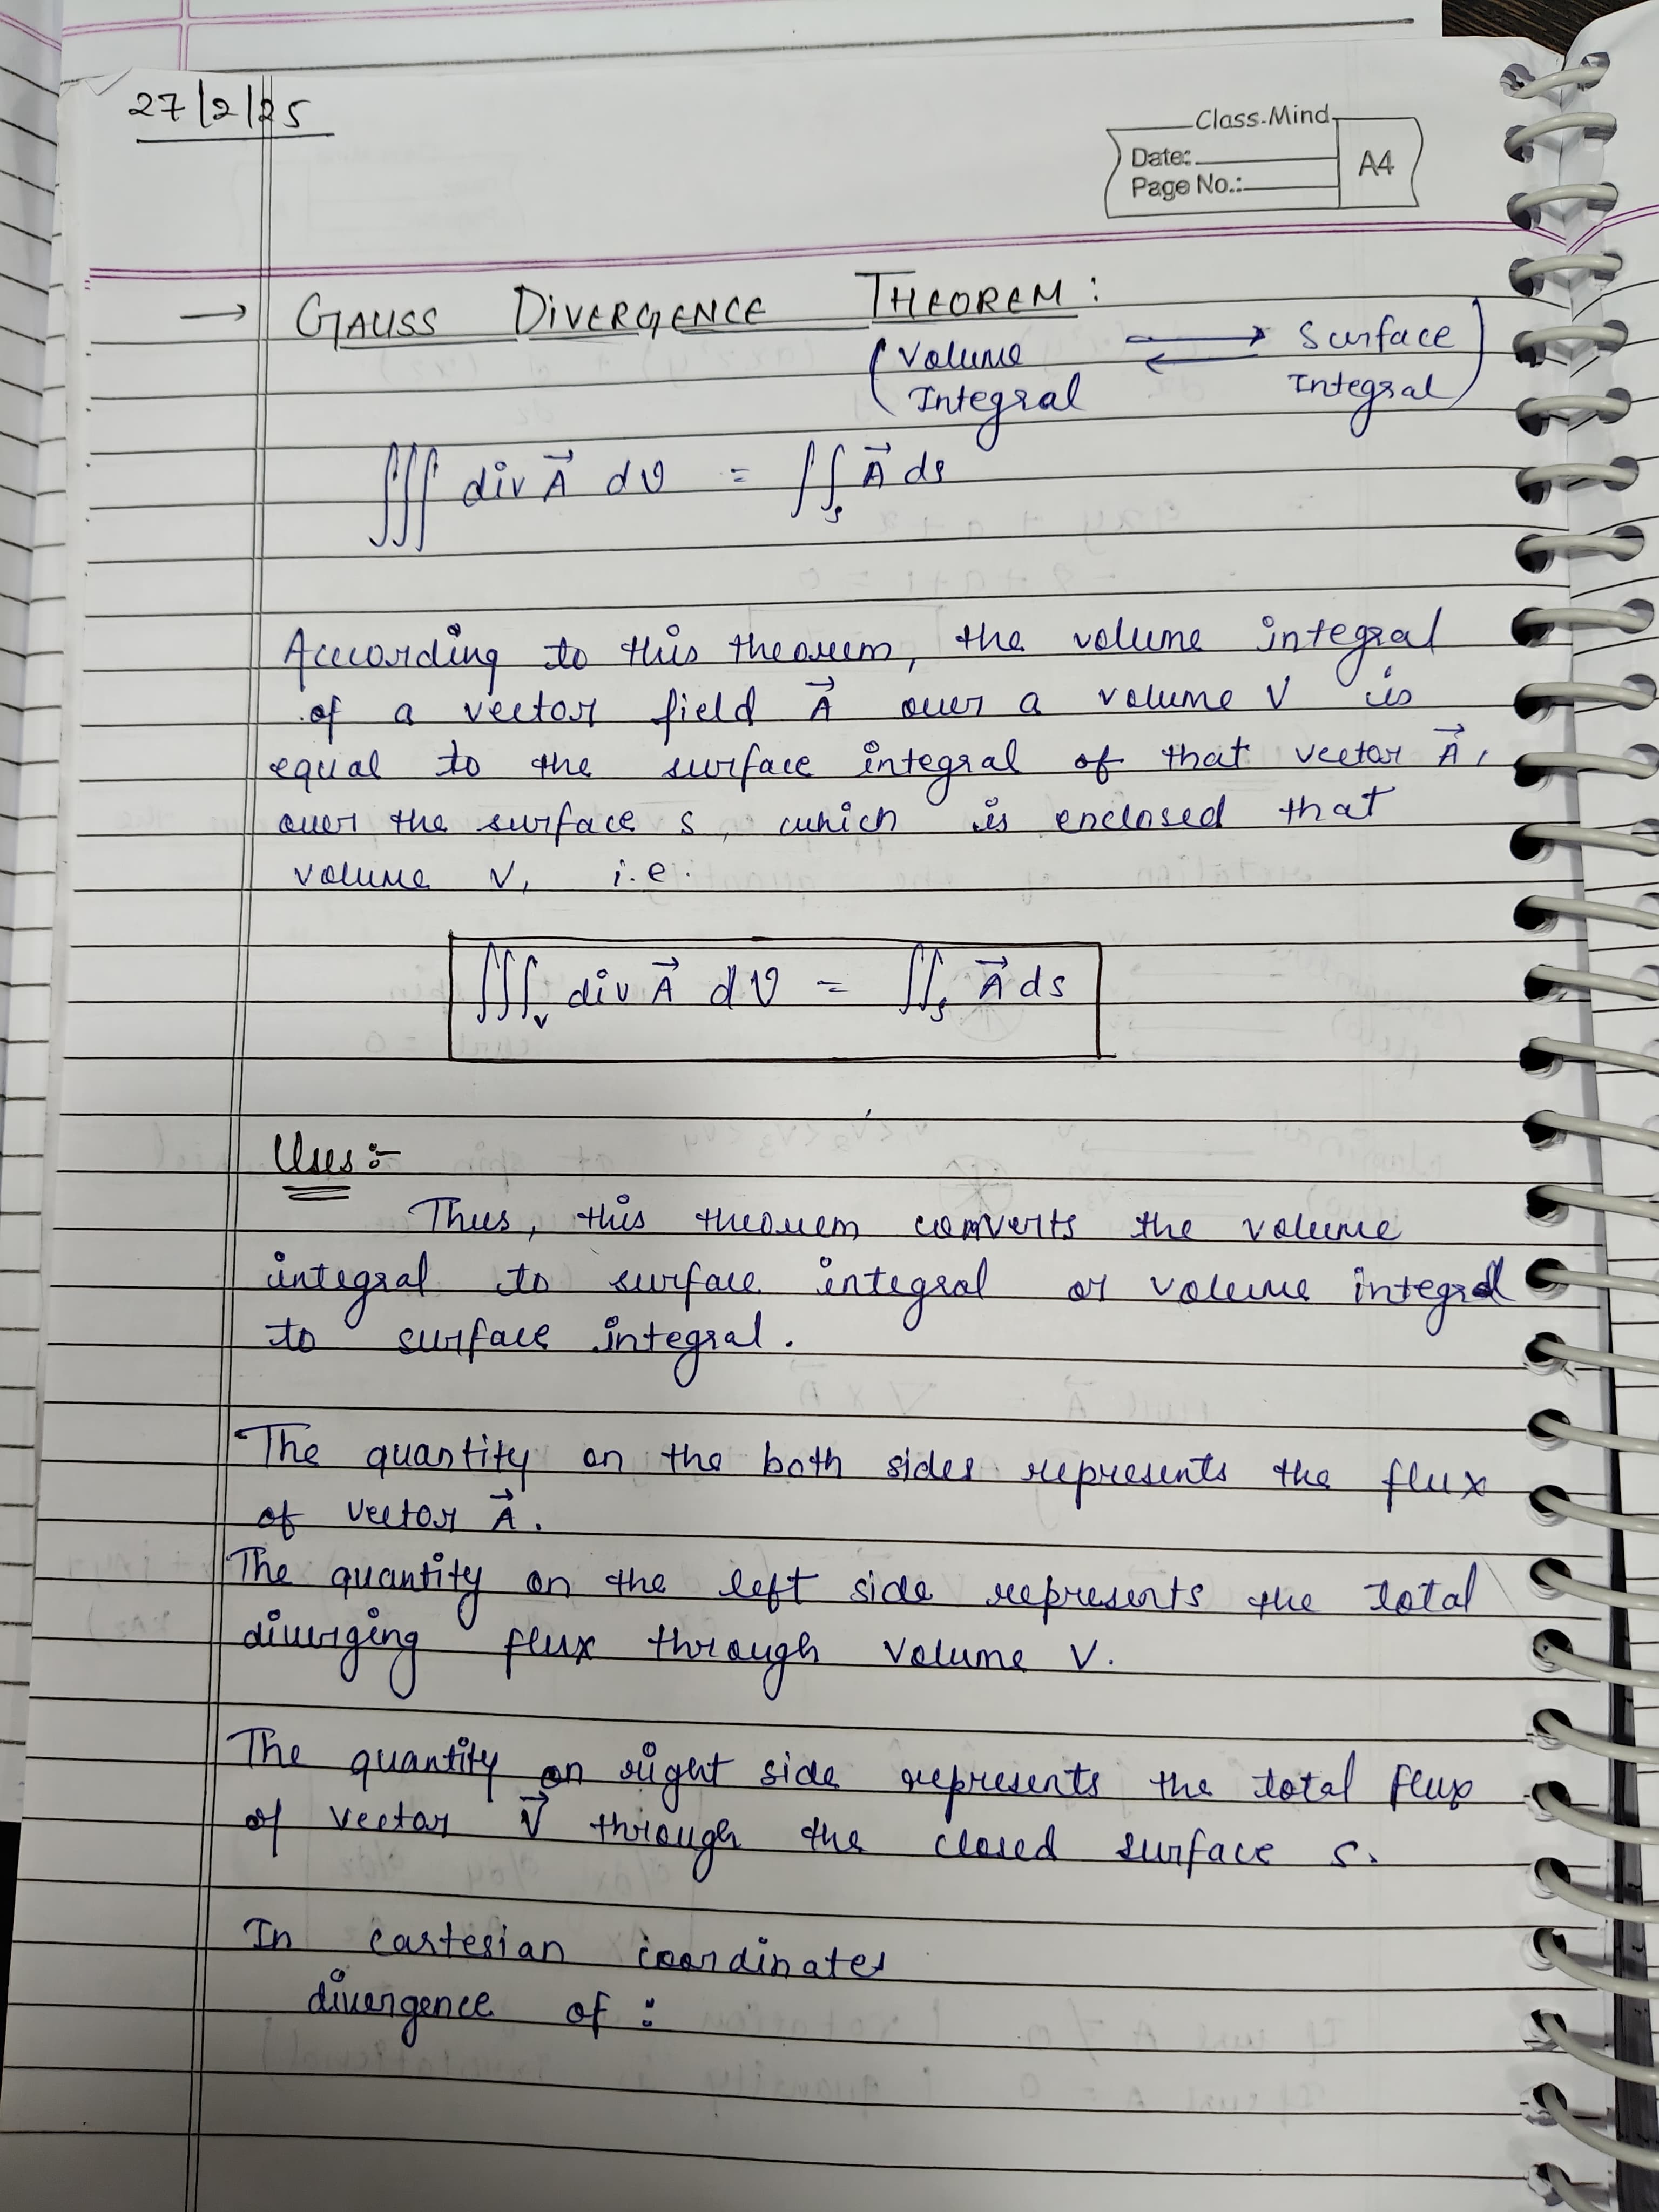 27/2/25
Class-Mind
Date:
Page No.:
A4
→ GAUSS DIVERGENCE THEOREM:
(Volume ⇄ Surface
Integral Integral)
∭ div A⃗ dV = ∬ₛ A⃗ ds
According to this theorem, the volume integral
of a vector field A⃗ over a volume V is
equal to the surface integral of that vector A⃗,
over the surface s, which is enclosed that
volume V, i.e.
∭ᵥ div A⃗ dV = ∬ₛ A⃗ ds
Uses :-
Thus, this theorem converts the volume
integral to surface integral or volume integral
to surface integral.
The quantity on the both sides represents the flux
of vector A⃗.
The quantity on the left side represents the total
diverging flux through volume V.
The quantity on right side represents the total flux
of vector V⃗ through the closed surface s.
In cartesian coordinates
divergence of :